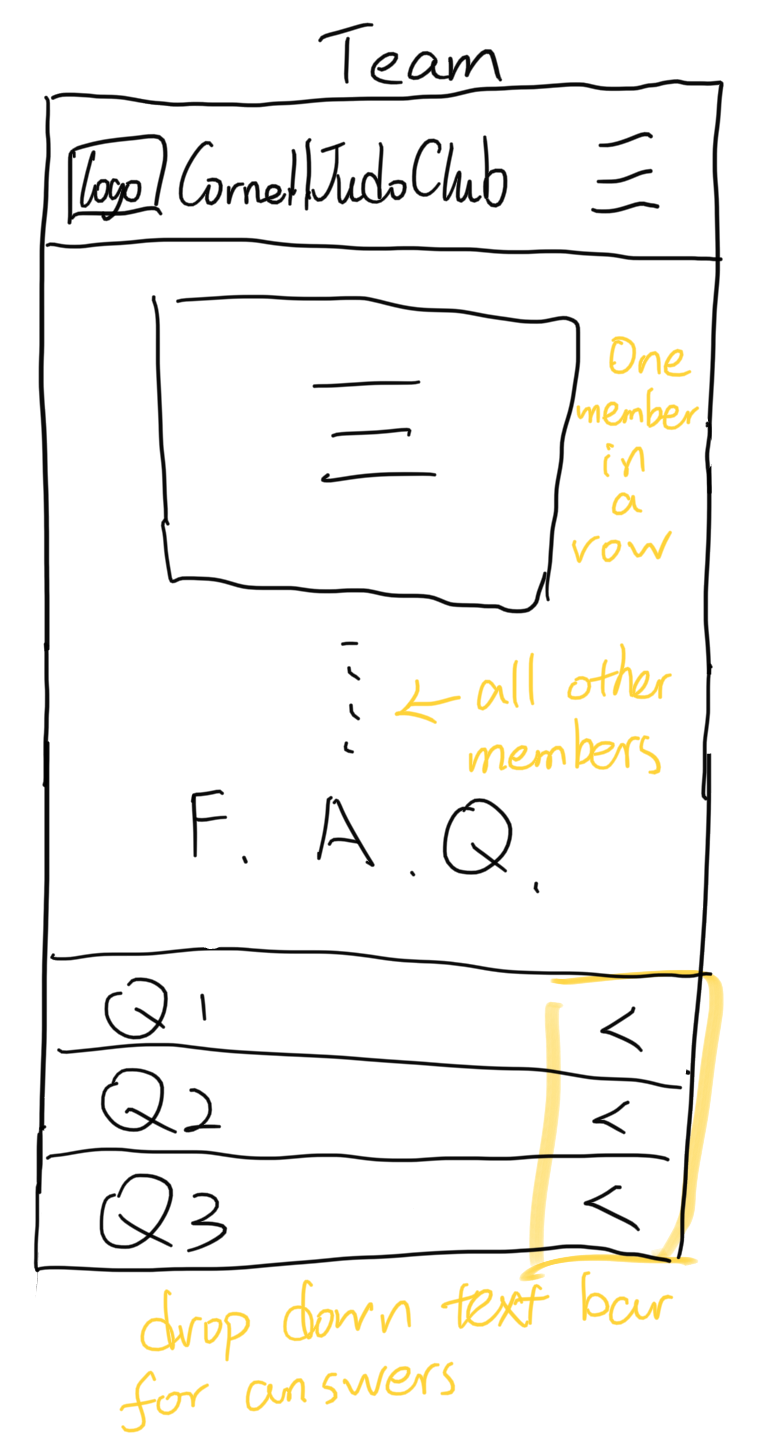 Team
logo Cornell Judo Club
One
member
in
a
row
all other
members
F. A. Q.
Q1 <
Q2 <
Q3 <
drop down text bar
for answers